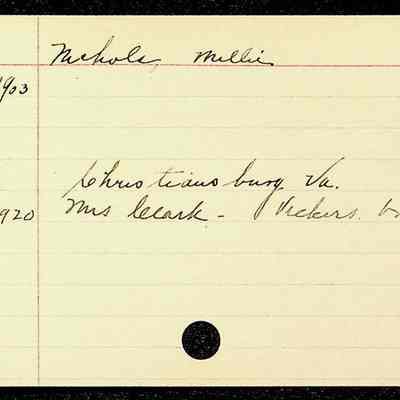 Nichols, Millie
1903
Christiansburg Va.
1920 Mrs Clark - Vickers.